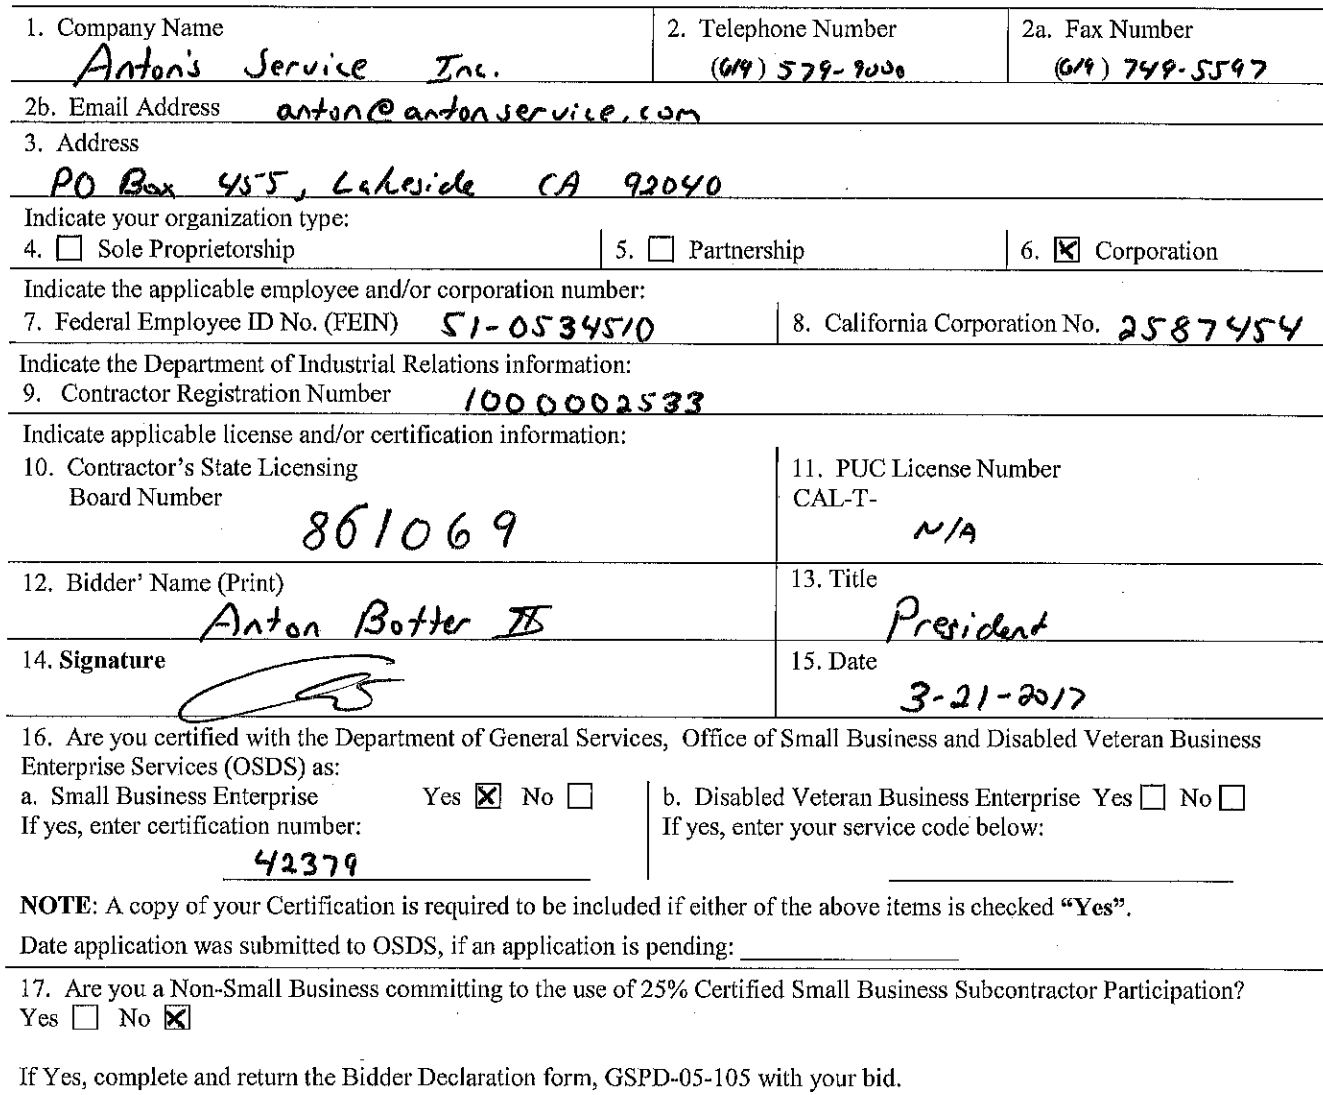 1. Company Name 2. Telephone Number 2a. Fax Number
Anton's Service Inc. (619) 579-9000 (619) 749-5597
2b. Email Address anton@antonservice.com
3. Address
PO Box 455, Lakeside CA 92040
Indicate your organization type:
4. ☐ Sole Proprietorship 5. ☐ Partnership 6. ☒ Corporation
Indicate the applicable employee and/or corporation number:
7. Federal Employee ID No. (FEIN) 51-0534510 8. California Corporation No. 2587454
Indicate the Department of Industrial Relations information:
9. Contractor Registration Number 1000002533
Indicate applicable license and/or certification information:
10. Contractor's State Licensing 11. PUC License Number
Board Number CAL-T-
861069 N/A
12. Bidder' Name (Print) 13. Title
Anton Botter II President
14. Signature 15. Date
3-21-2017
16. Are you certified with the Department of General Services, Office of Small Business and Disabled Veteran Business
Enterprise Services (OSDS) as:
a. Small Business Enterprise Yes ☒ No ☐ b. Disabled Veteran Business Enterprise Yes ☐ No ☐
If yes, enter certification number: If yes, enter your service code below:
42379
NOTE: A copy of your Certification is required to be included if either of the above items is checked “Yes”.
Date application was submitted to OSDS, if an application is pending:
17. Are you a Non-Small Business committing to the use of 25% Certified Small Business Subcontractor Participation?
Yes ☐ No ☒
If Yes, complete and return the Bidder Declaration form, GSPD-05-105 with your bid.